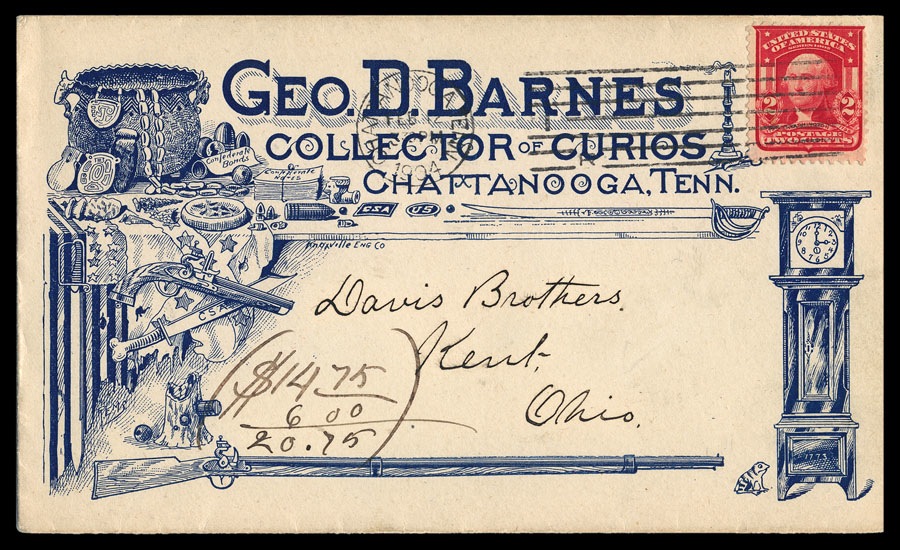 GEO. D. BARNES
COLLECTOR OF CURIOS
CHATTANOOGA, TENN.
UNITED STATES
OF AMERICA
SERIES 1902
2 2
POSTAGE
TWO CENTS
CHATTANOOGA
TENN
FEB
1904
Confederate
Bonds
Confederate
Notes
CSA
US
KNOXVILLE ENG CO
CSA
Davis Brothers.
Kent,
Ohio.
$14 75
6 00
20.75
1773